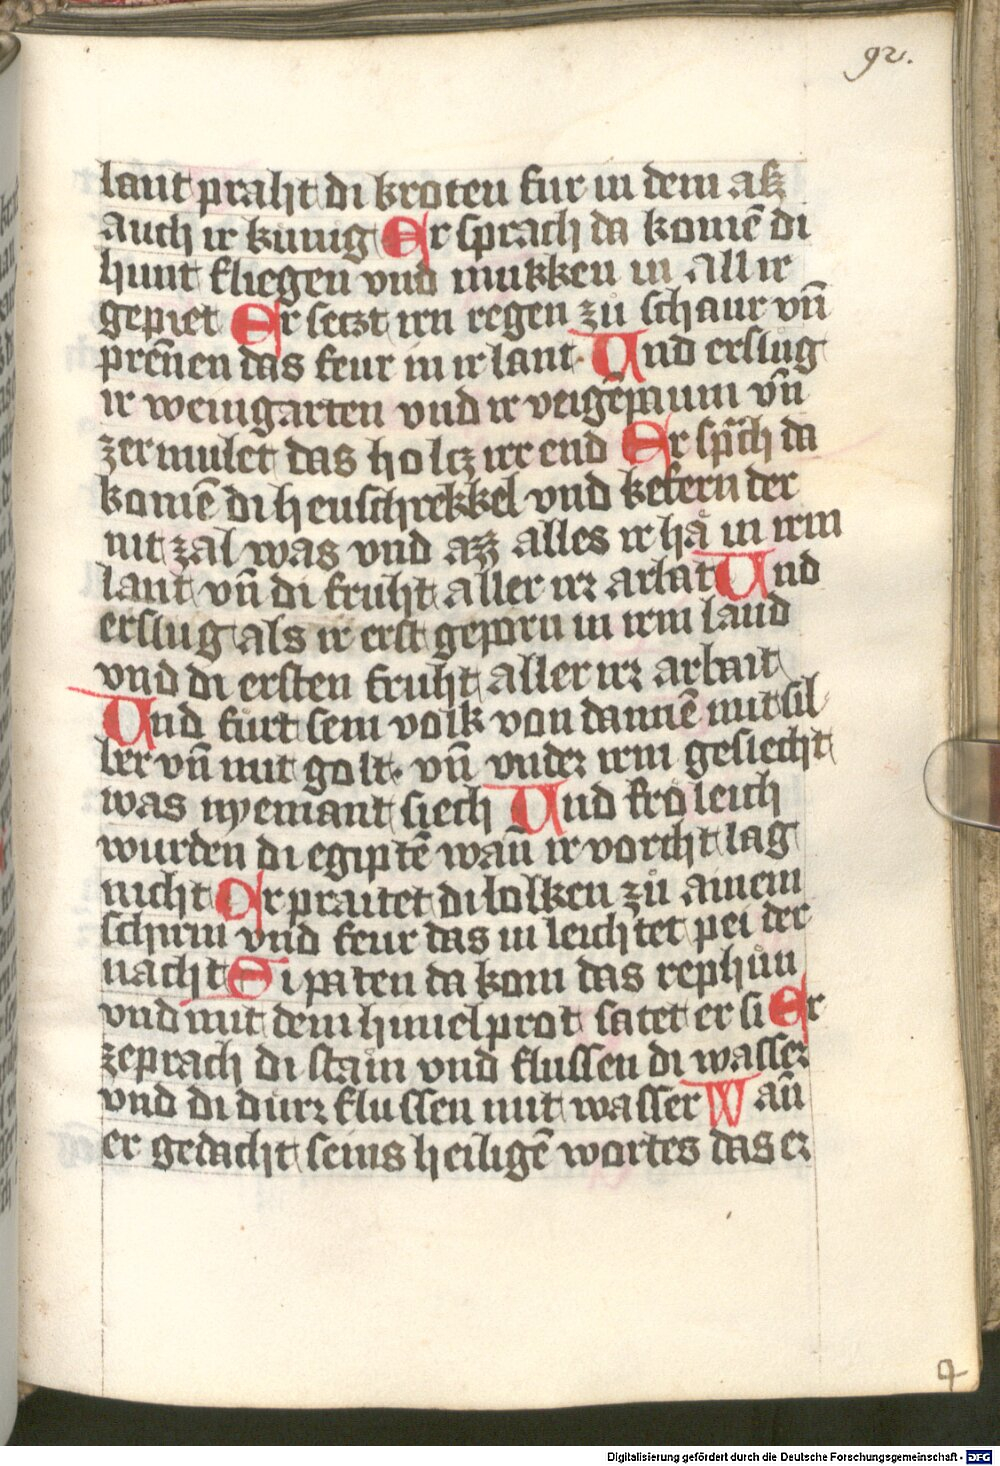 92.
lant praht di kroten fur in dem aß
auch ir kunig Er sprach da komē di
hunt fliegen vnd mukken in all ir
gepiet Er seczt irn regen zů schaur vn̄
prēnen das feur in ir lant Und erslug
ir weingarten vnd ir veigēpaum vn̄
zermulet das holcz irr end Er sprach da
komē di heuschrekkel vnd kefern der
nit zal was vnd azz alles ir hä in irm
lant vn̄ di fruht aller irr arbat Und
erslug als ir erst geporn in irm land
vnd di ersten fruht aller irr arbait
Und fůrt sein volk von dannē mit sil
ber vn̄ mit golt. vn̄ vnder irm geslecht
was nyemant siech Und frōleich
wurden di egiptē wan̄ ir vorcht lag
nicht Er praitet di bolken zů ainem
schirm vnd feur das in leichtet pei der
nacht Si paten da kom das rephůn
vnd mit dem himelprot satet er si Er
zeprach di stain vnd flussen di wasser
vnd di dürr flussen mit wasser Wan̄
er gedacht seins heiligē wortes das er
Digitalisierung gefördert durch die Deutsche Forschungsgemeinschaft - DFG